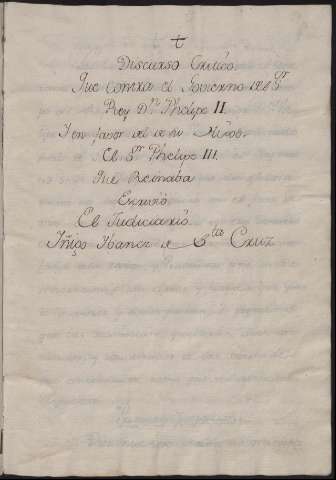 †
Discurso Critico.
Que contra el Govierno del Sr
Rey Dn Phelipe II
Y en favor del de su Niños.
El Sr Phelipe III.
Que Reinaba
Escrivió
El Judiciario
Iñigo Ibañez de Sta Cruz